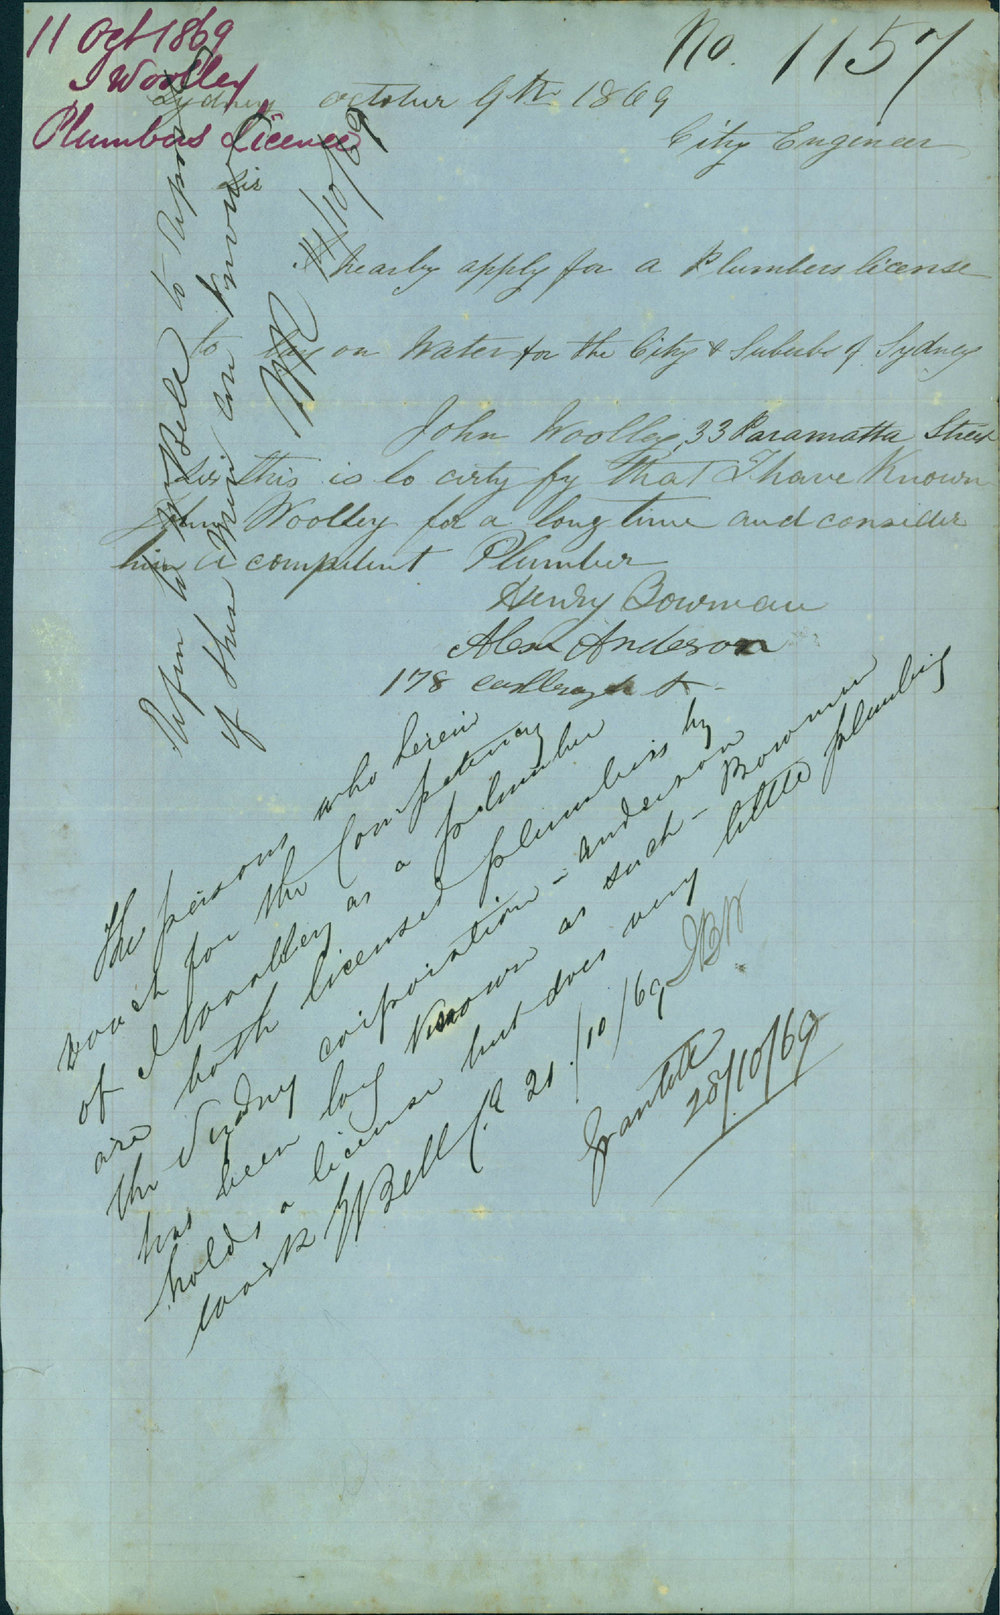 11 Oct 1869
J Woolley
Plumbers Licence
No. 1157
Sydney October 9th 1869
City Engineer
Sir
I hearby apply for a Plumbers license
to lay on Water for the City & Suburbs of Sydney
John Woolley 33 Paramatta Street
Sir this is to certy fy that I have Known
John Woolley for a long time and consider
him a competent Plumber
Henry Bowman
Alex Anderson
178 Castlereagh St
Refer to Mr Bell to report
if these Men are known
11/10/69
The persons who herein
vouch for the Competency
of J Woolley as a plumber
are both licensed plumbers by
the Sydney corporation - Anderson
has been long known as such - Bowman
holds a license but does very little plumbing
work
W Bell C.E 21/10/69
Granted
25/10/69